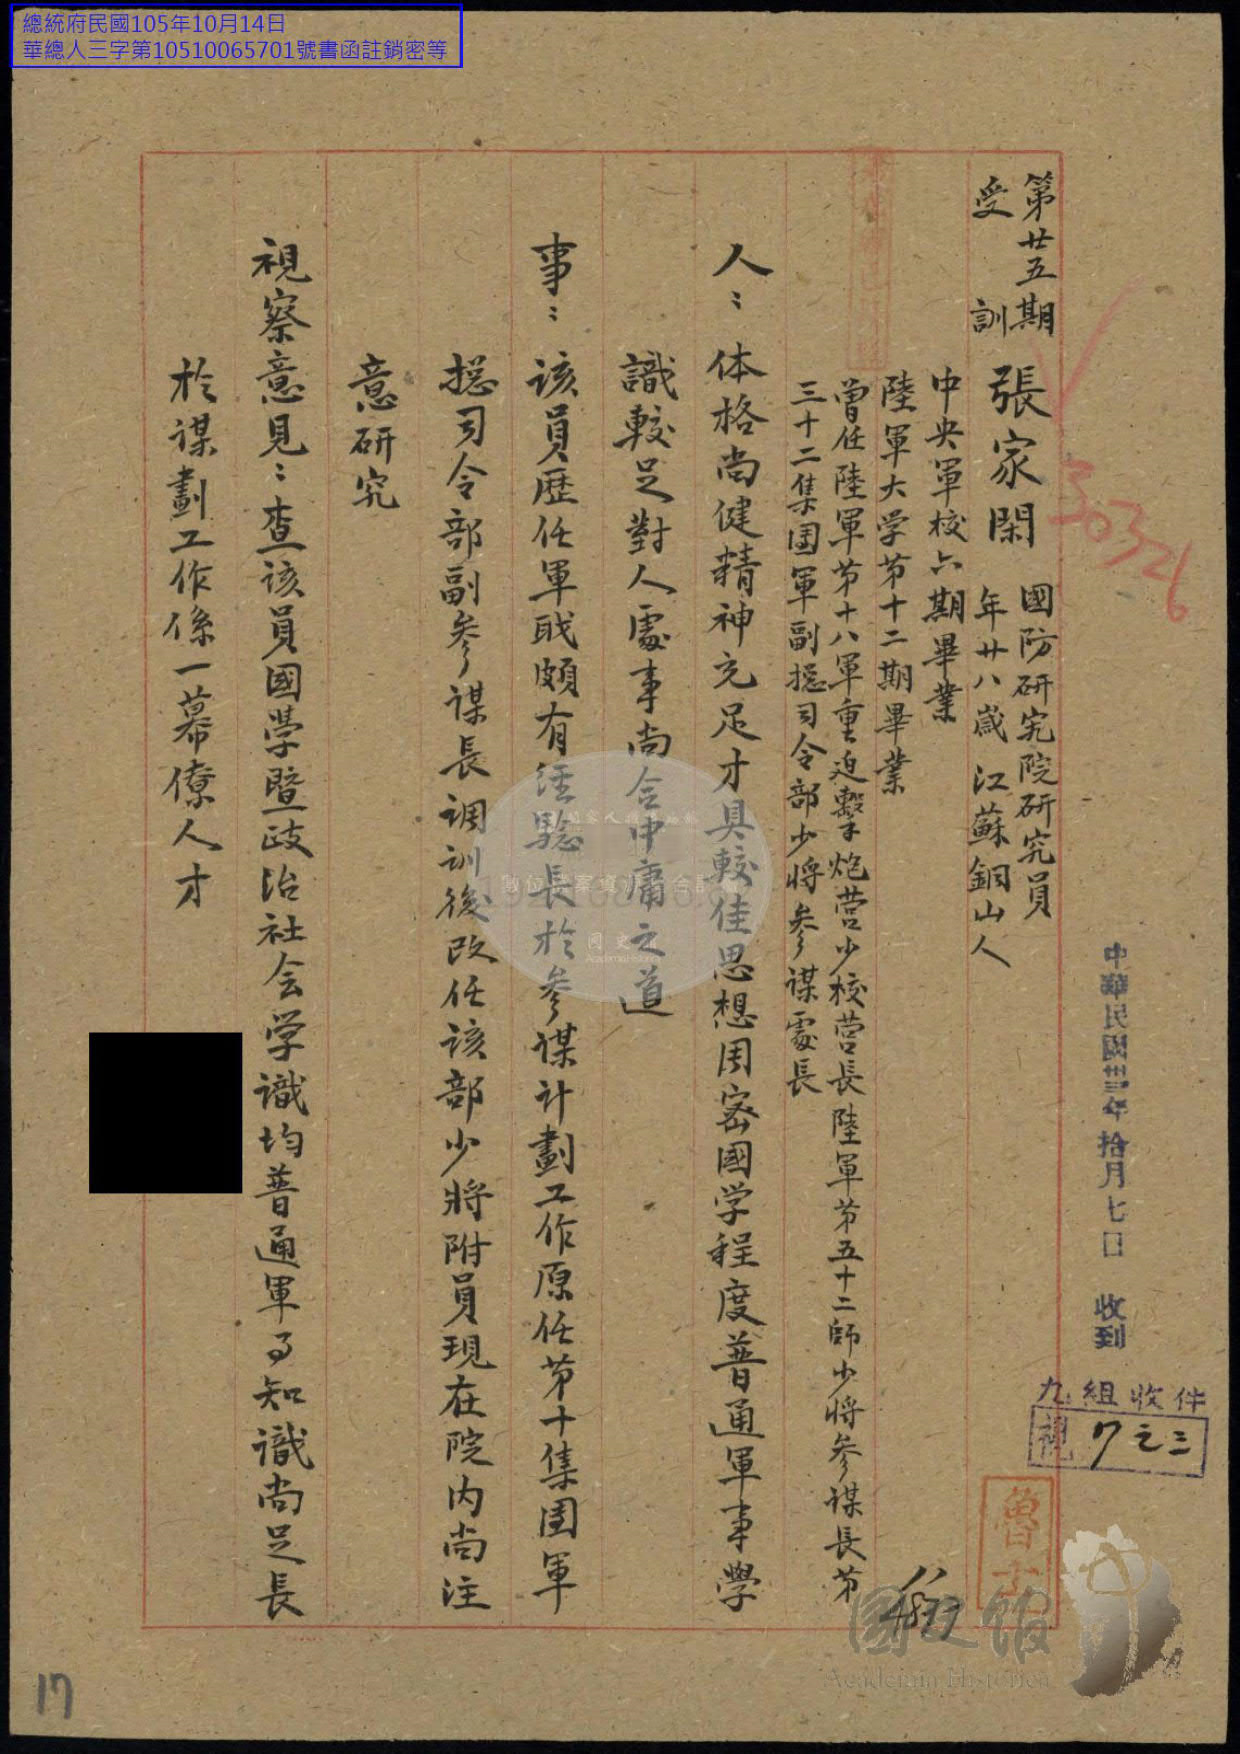 總統府民國105年10月14日
華總人三字第10510065701號書函註銷密等
中華民國卅三年拾月七日 收到
九組收件
視 7之三
30326
第廿五期
受訓
張家閑
國防研究院研究員
年廿八歲 江蘇銅山人
中央軍校六期畢業
陸軍大学苐十二期畢業
曾任陸軍苐十八軍重迫擊炮营少校营長陸軍苐五十二師少將参谋長苐
三十二集团軍副捴司令部少將参谋處長
人：体格尚健精神充足才具較佳思想周密國学程度普通軍事學
識較足對人處事尚合中庸之道
事：该員歷任軍職頗有经驗長於参谋计劃工作原任苐十集团軍
捴司令部副参谋長调训後改任该部少將附員現在院内尚注
意研究
視察意見：查该員國学暨政治社会学識均普通軍事知識尚足長
於谋劃工作係一幕僚人才
國史館
Academia Historica
17